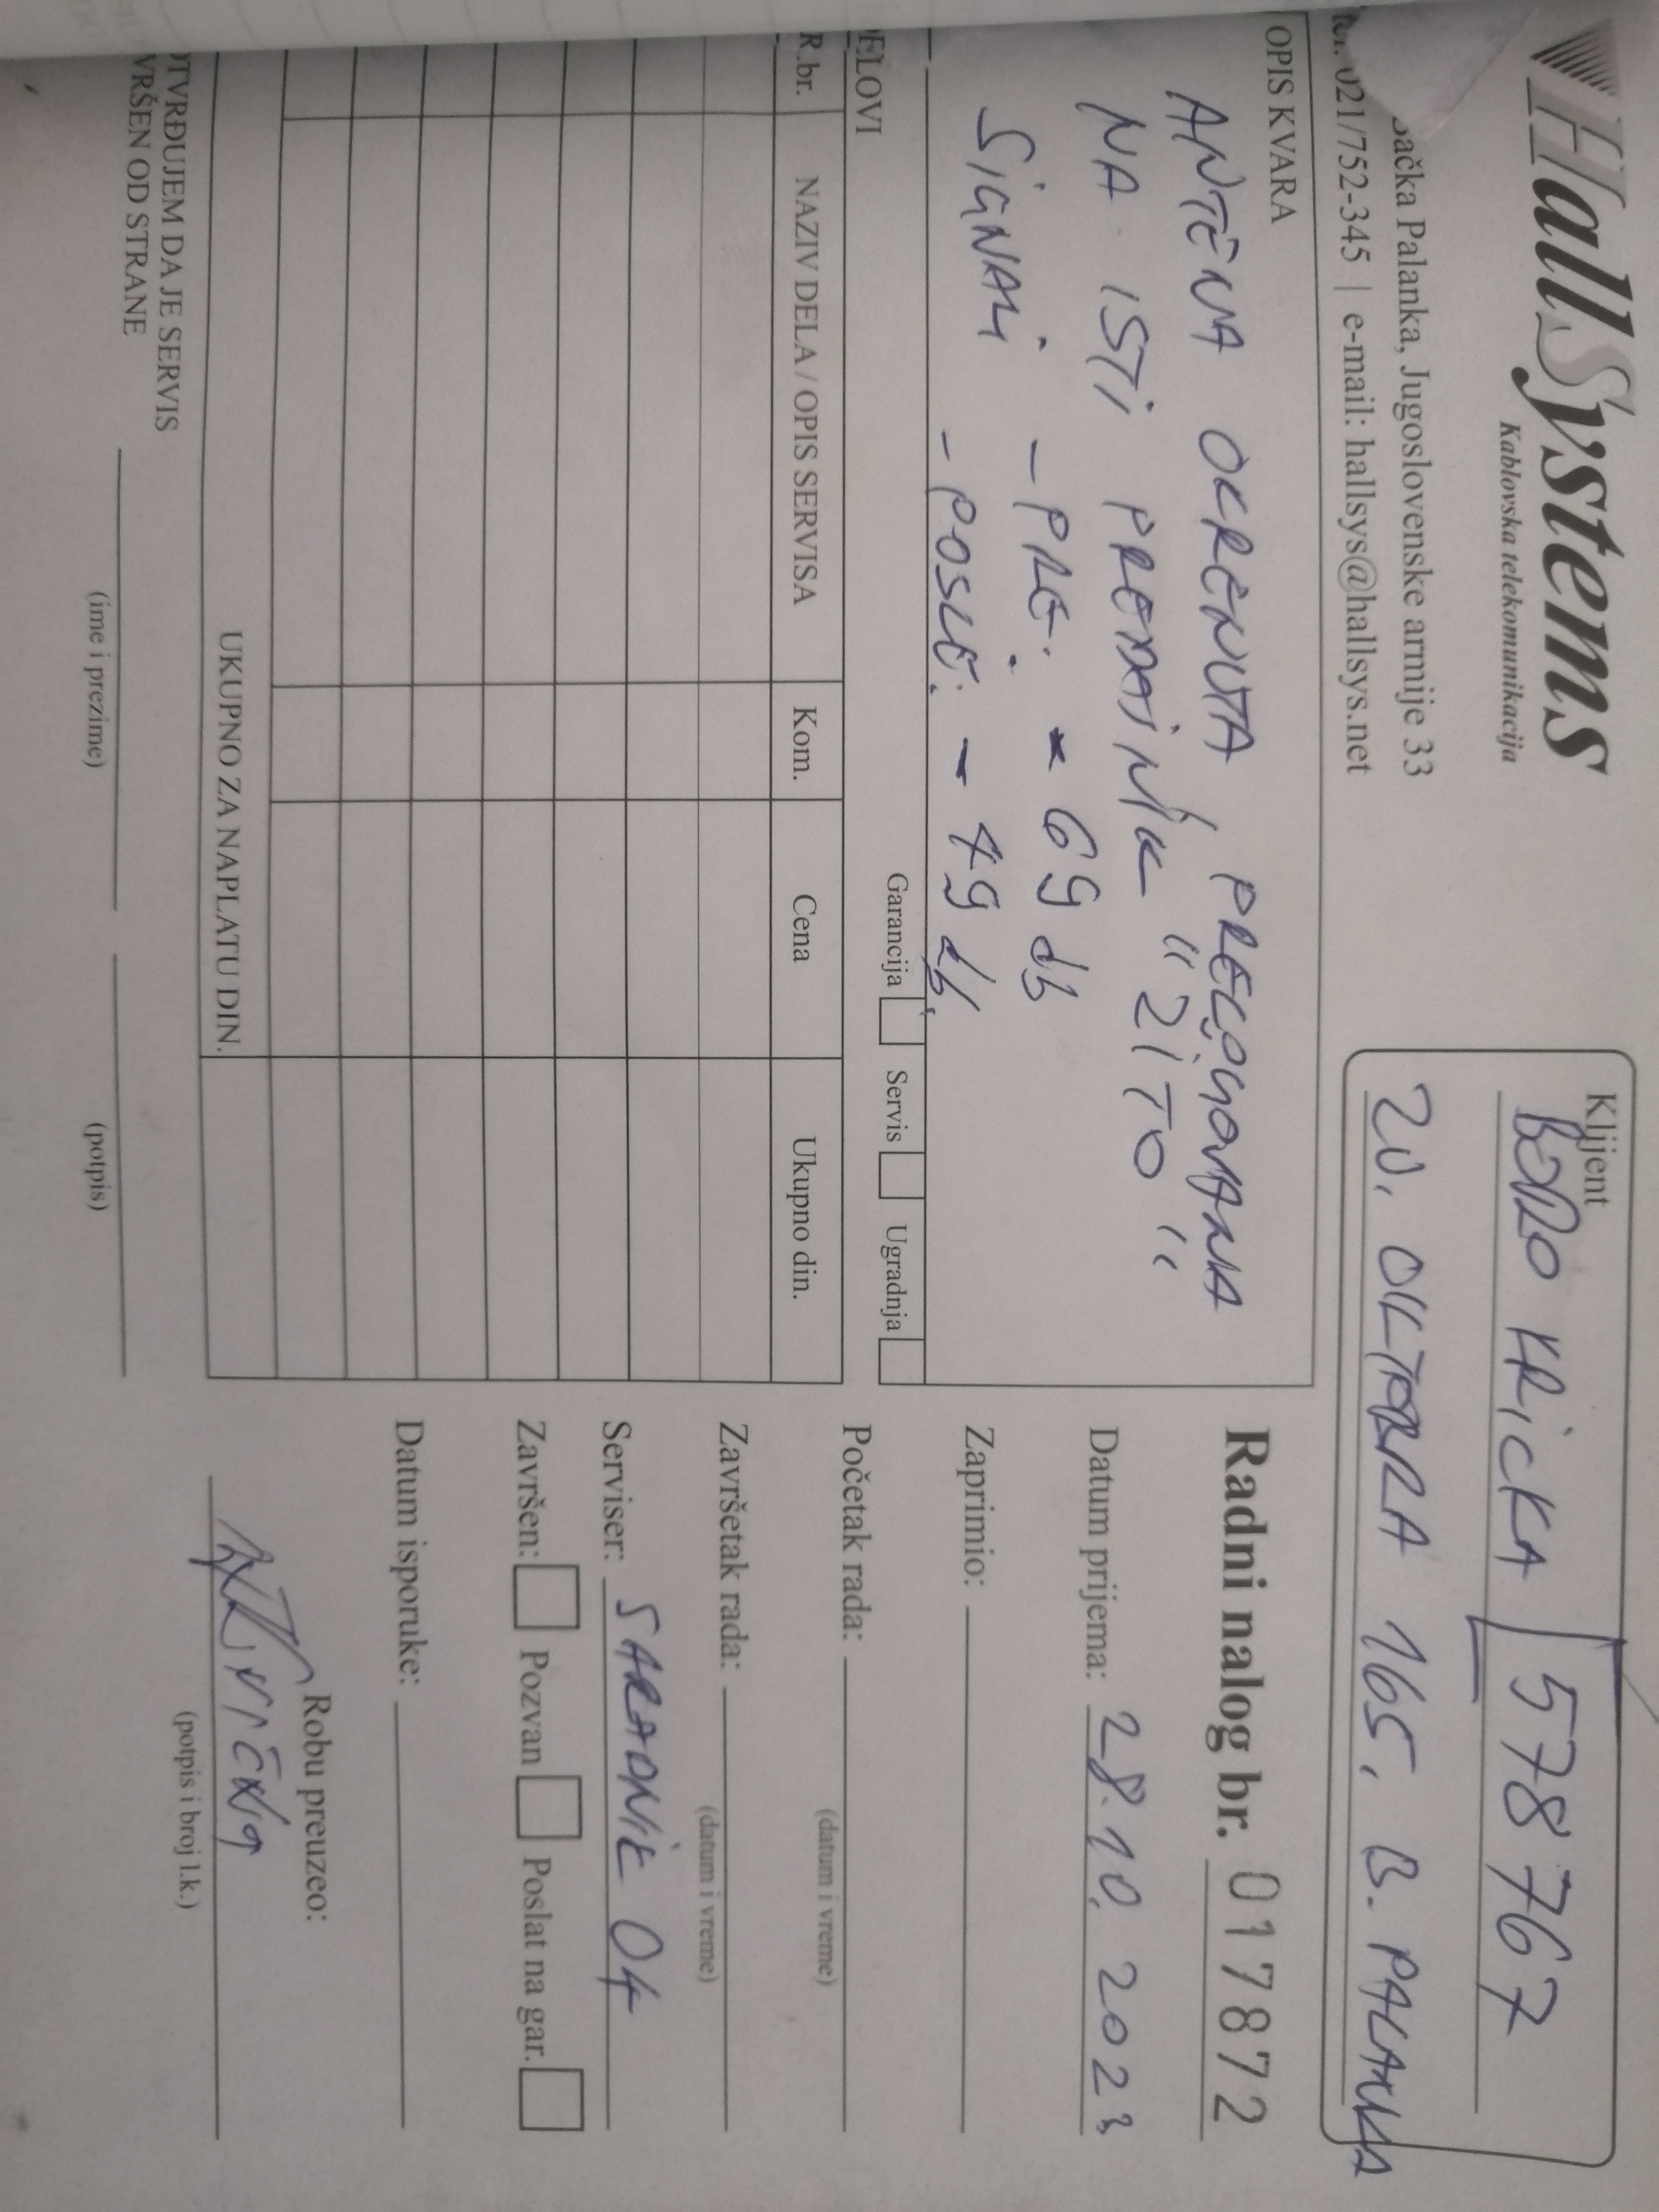 HallSystems
Kablovska telekomunikacija
Bačka Palanka, Jugoslovenske armije 33
tel. 021/752-345 | e-mail: hallsys@hallsys.net
Klijent
BORO HRiCKA 578767
20. OKTOBRA 165, B. PALANKA
OPIS KVARA
ANTENA OKRENUTA, PRELOGOVANA
NA ISTI PREDAJNIK "ŽITO"
SiGNALi - PRE: - 69 db
- POSLE: - 49 db
Radni nalog br. 017872
Datum prijema: 28.10.2023
Zaprimio:
Početak rada:
(datum i vreme)
Završetak rada:
(datum i vreme)
Serviser: SARADNiK 04
Završen: Pozvan Poslat na gar.
Datum isporuke:
Robu preuzeo:
(potpis i broj l.k.)
DELOVI
Garancija Servis Ugradnja
R.br. NAZIV DELA / OPIS SERVISA Kom. Cena Ukupno din.
UKUPNO ZA NAPLATU DIN.
POTVRĐUJEM DA JE SERVIS
IZVRŠEN OD STRANE
(ime i prezime) (potpis)